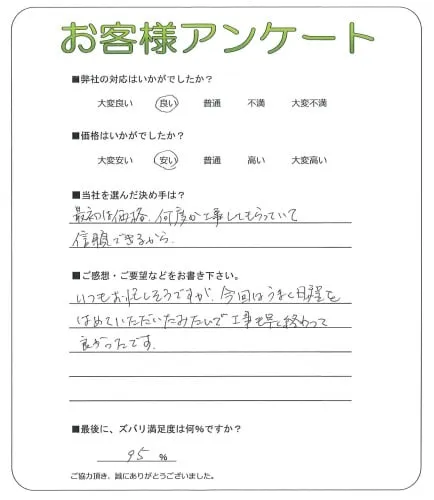 お客様アンケート
■弊社の対応はいかがでしたか？
大変良い 良い 普通 不満 大変不満
■価格はいかがでしたか？
大変安い 安い 普通 高い 大変高い
■当社を選んだ決め手は？
最初は価格、何度か工事してもらっていて
信頼できるから。
■ご感想・ご要望などをお書き下さい。
いつもお忙しそうですが、今回はうまく日程を
はめていただいたみたいで工事も早く終わって
良かったです。
■最後に、ズバリ満足度は何％ですか？
95 ％
ご協力頂き、誠にありがとうございました。